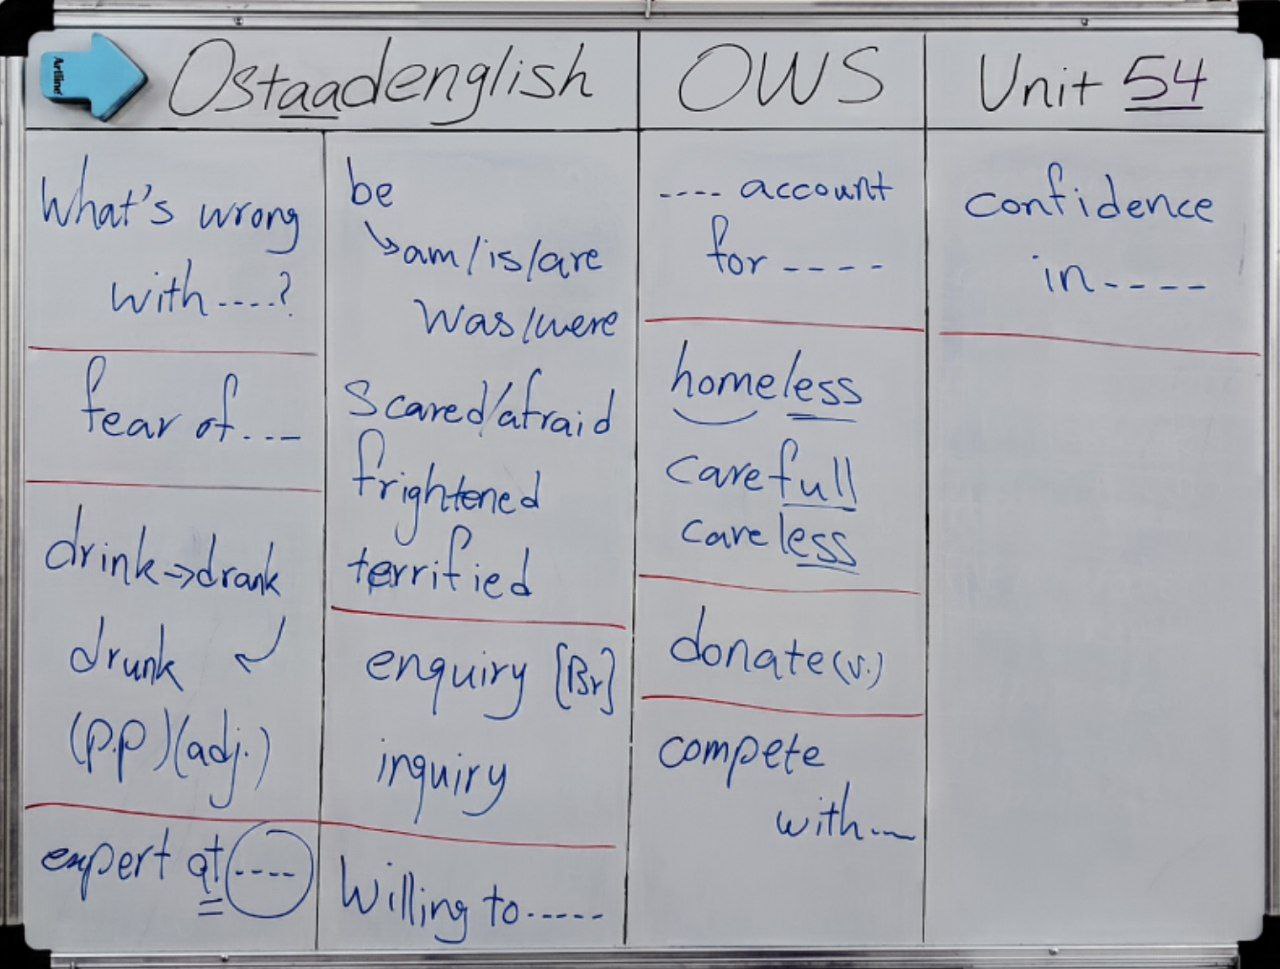 Artline
Ostaadenglish
OWS
Unit 54
What's wrong
with ----?
fear of ---
drink → drank
drunk
(p.p)(adj.)
expert at ----
be
↳ am/is/are
was/were
scared/afraid
frightened
terrified
enquiry [Br]
inquiry
Willing to -----
---- account
for ----
homeless
carefull
careless
donate (v.)
compete
with ---
confidence
in ----